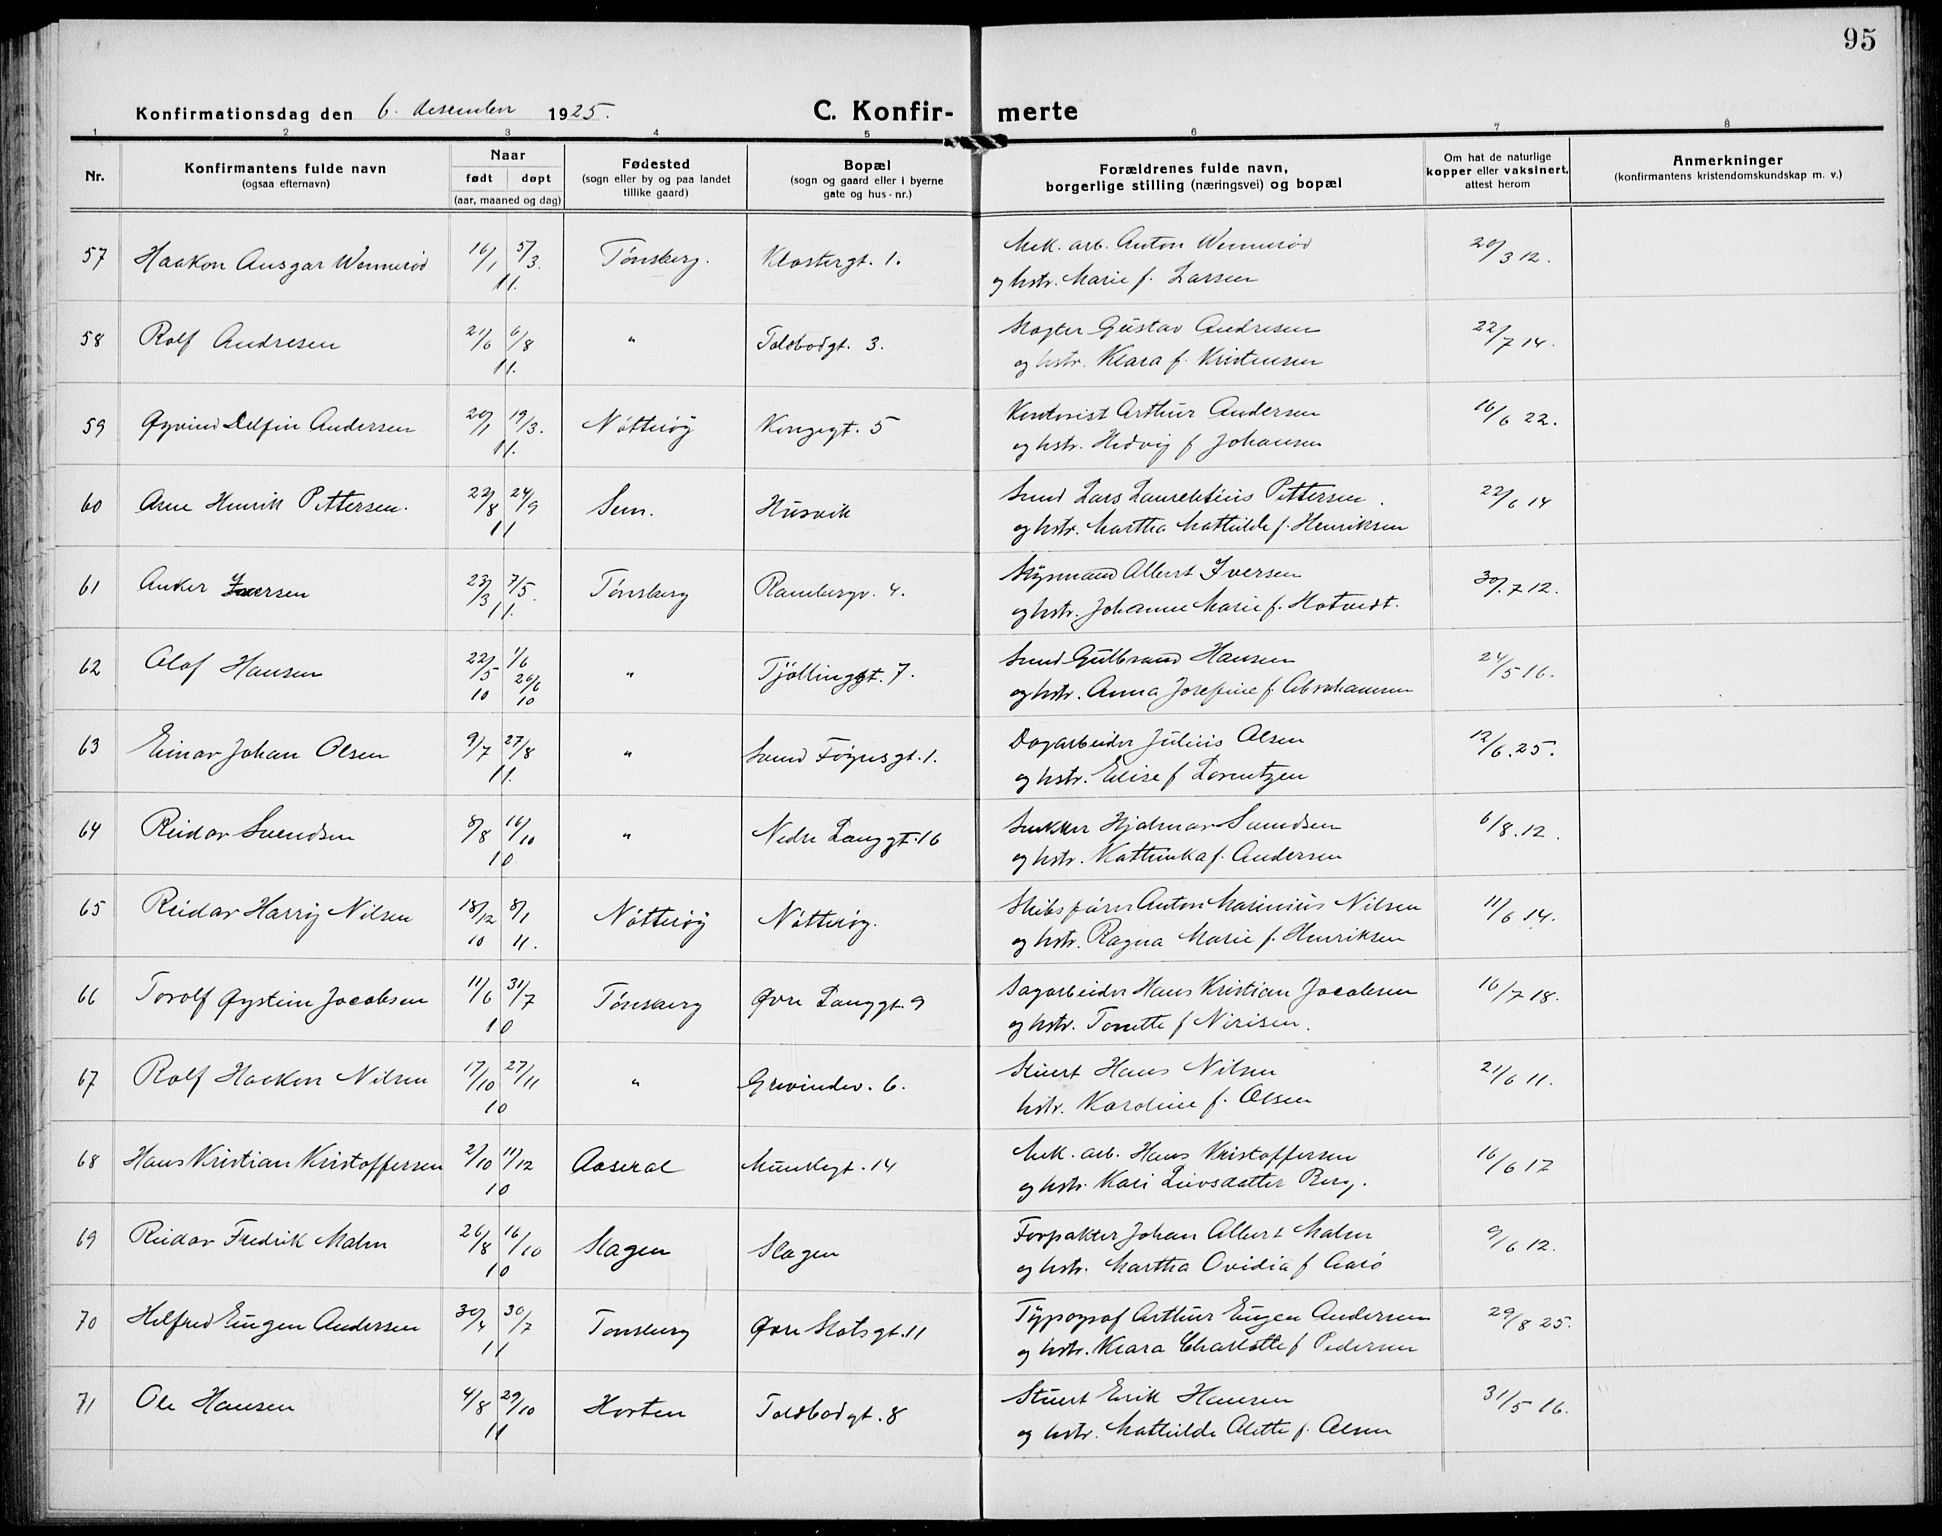 95
Konfirmationsdag den 6. desember 1925. C. Konfir- merte
1 2 3 4 5 6 7 8
Nr. Konfirmantens fulde navn (ogsaa efternavn) Naar født døpt (aar, maaned og dag) Fødested (sogn eller by og paa landet tillike gaard) Bopæl (sogn og gaard eller i byerne gate og hus-nr.) Forældrenes fulde navn, borgerlige stilling (næringsvei) og bopæl Om hat de naturlige kopper eller vaksinert, attest herom Anmerkninger (konfirmantens kristendomskundskap m. v.)
57 Haakon Ansgar Wennerød 16/1 5/3. 11. Tønsberg. Klostergt. 1. Mek. arb. Anton Wennerød 20/3 12.
og hstr. Marie f. Larsen
58 Rolf Andresen 21/6 6/8 11. " Toldbodgt. 3. Slagter Gustav Andresen 22/7 14.
og hstr. Klara f. Kristensen
59 Øyvind Delfin Andersen 20/1 19/3. 11. Nøtterøy Kongegt. 5 Kontorist Arthur Andersen 16/6 22.
og hstr. Hedvig f Johansen
60 Arne Henrik Pettersen. 22/8 24/9 11 Sem. Husvik Smed Lars Laurentius Pettersen. 22/6 14
og hstr. Martha Mathilde f. Henriksen
61 Anker Iversen 23/3 7/5. 11. Tønsberg Rambergv. 4. Styrmand Albert Iversen 30/7 12.
og hstr. Johanne Marie f. Hotvedt.
62 Olaf Hansen 22/5 10 1/6 26/6 10 " Tjøllinggt. 7. Smed Gulbrand Hansen 24/5 16.
og hstr. Anna Josefine f Abrahamsen
63 Einar Johan Olsen 9/7 27/8 11. " Svend Føynsgt. 1. Dagarbeider Julius Olsen 12/6. 25.
og hstr. Elise f Lorentzen
64 Reidar Svendsen 8/8 16/10 10 " Nedre Langgt. 16 Snekker Hjalmar Svendsen 6/8. 12.
og hstr. Kathinka f. Andersen
65 Reidar Harry Nilsen 18/12 10 8/1 11. Nøtterøy Nøtterøy. Skibsfører Anton Marinius Nilsen 11/6 14.
og hstr. Ragna Marie f. Henriksen
66 Torolf Øystein Jacobsen 11/6 31/7 10 Tønsberg Øvre Langgt. 9 Sagarbeider Hans Kristian Jacobsen 16/7 18.
og hstr. Tonette f Nirisen.
67 Rolf Haakon Nilsen 17/10 27/11 10 " Grevindev. 6. Stuert Hans Nilsen 21/6 11.
hstr. Karoline f. Olsen
68 Hans Kristian Kristoffersen 2/10 11/12 10 Aaseral Munkegt. 14 Mek. arb. Hans Kristoffersen 16/6 17
og hstr. Kari Leivsdatter Berg.
69 Reidar Fredrik Malm 26/8 16/10 10 Slagen Slagen Forpakter Johan Albert Malm 9/6 12.
og hstr. Martha Ovidia f Aarø
70 Hilfred Eugen Andersen 30/4 30/7 11 Tønsberg Øvre Slotsgt. 11 Typograf Arthur Eugen Andersen 29/8 25.
og hstr. Klara Charlotte f Pedersen
71 Ole Hansen 4/8 29/10 11 Horten Toldbodgt. 8 Stuert Erik Hansen 31/5 16.
og hstr. Mathilde Alette f. Olsen